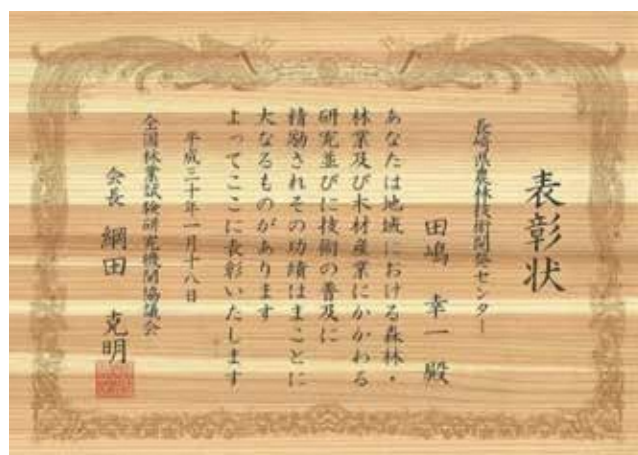 表彰状
長崎県農林技術開発センター
田嶋 幸一 殿
あなたは地域における森林・
林業及び木材産業にかかわる
研究並びに技術の普及に
精励されその功績はまことに
大なるものがあります
よってここに表彰いたします
平成三十年一月十八日
全国林業試験研究機関協議会
会長 綱田 克明